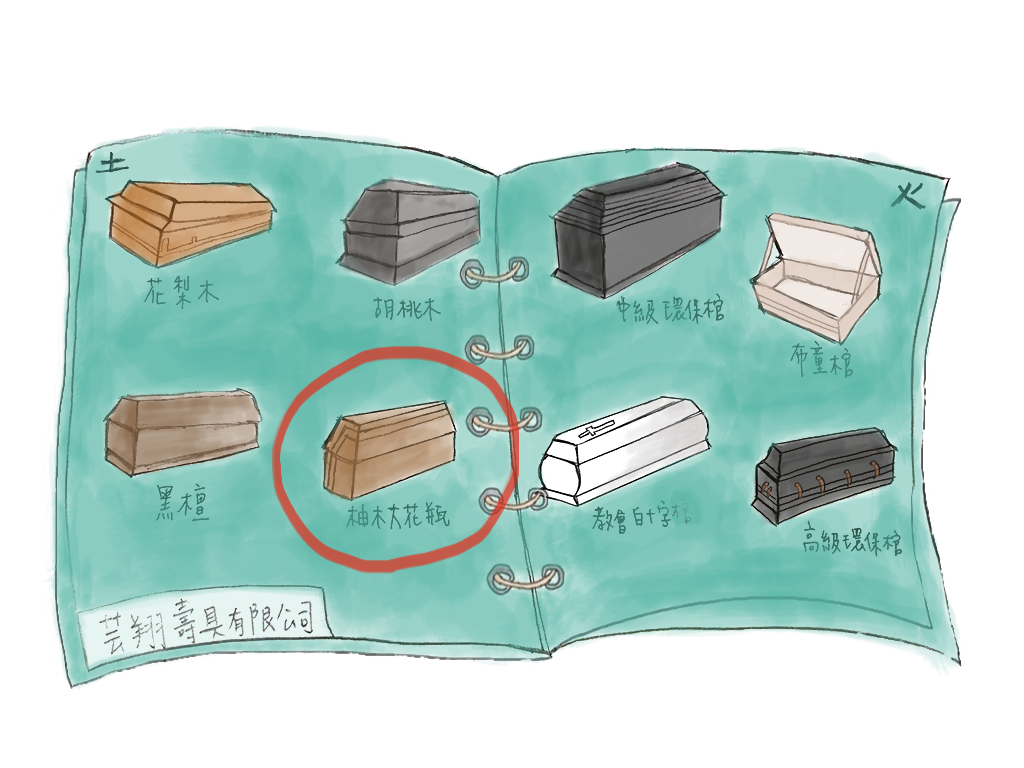 土
花梨木
胡桃木
黑檀
柚木大花瓶
芸翔壽具有限公司
火
中級環保棺
布童棺
教會白十字棺
高級環保棺